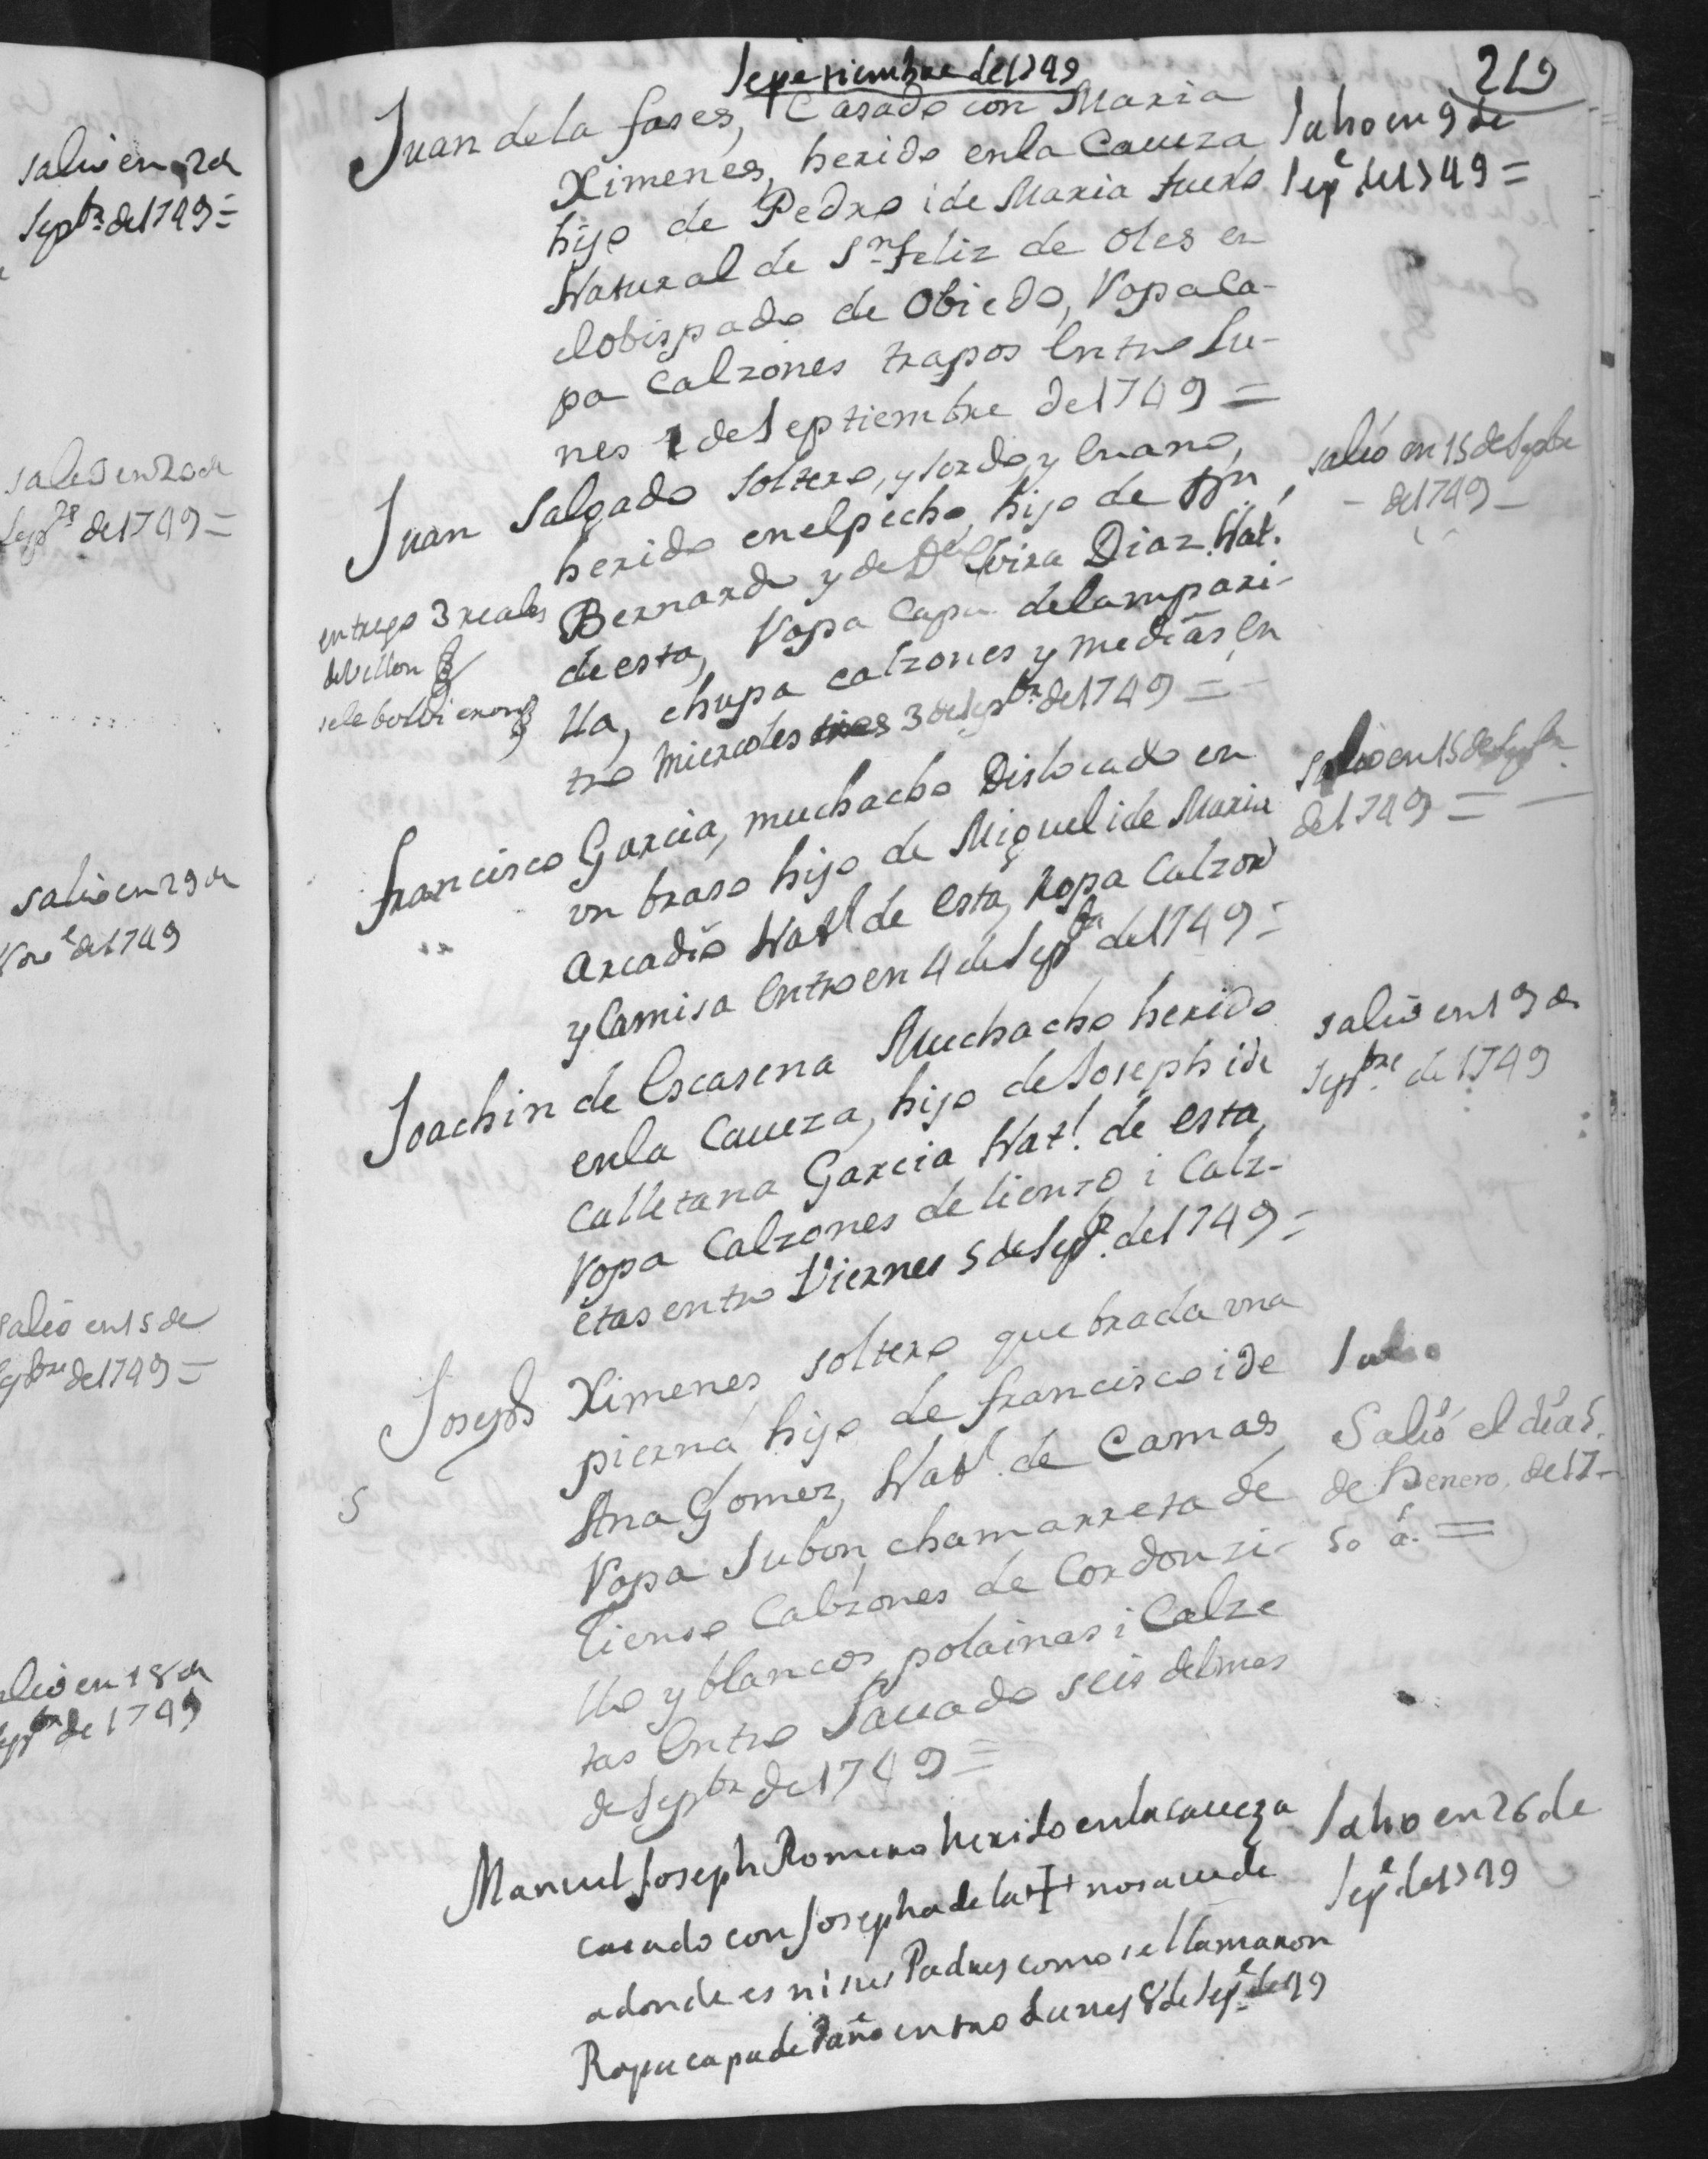 salio en 2 de
Septr. de 1749 =
salio en 20 de
Sepre de 1749 =
salio en 29 de
Nore de 1749
salio en 15 de
Sepbre de 1749 =
salio en 18 de
Sepbre de 1749
Septiembre de 1749
219
Juan de la foses, Casado con Maria
Ximenes, herido en la Caueza
hijo de Pedro i de Maria tuero
Natural de Sn. feliz de Oles en
el obispado de Obiedo, Ropa Ca-
pa Calzones trapos Entro Lu-
nes 1 de Septiembre de 1749 =
Salio en 9 de
Sepe de 1749 =
Juan Salgado soltero, y sordo, y Enano,
herido en el pecho, hijo de Dn
Bernardo y de Da Elvira Diaz Nat.
de esta, Ropa Capa de lampari-
lla, chupa calzones y medias En
tro Miercoles tres 3 de Sepbre de 1749 =
entrego 3 reales
de Vellon
se le bolvieron
salio en 15 de Sepbre
de 1749
francisco Garcia, muchacho Dislocado en
un braso hijo de Miguel i de Maria
Arcadio Natl de Esta, Ropa Calzon
y Camisa Entro en 4 de Sepbre de 1749 =
salio en 15 de Sepbre
de 1749 =
Joachin de Escasena Muchacho herido
en la Caueza, hijo de Joseph i de
Calletana Garcia Natl. de esta
Ropa Calzones de lienzo i Calz-
etas entro Viernes 5 de Sepre. de 1749 =
salio en 19 de
Sepbre de 1749
Joseph Ximenes soltero quebrada una
pierna hijo de francisco i de
Ana Gomez, Natl. de Camas
Ropa Jubon, chamarreta de
Lienso Calzones de Cordonzi-
llo y blancos polainas i Calze
tas Entro Sauado seis del mes
de Sepbre de 1749 =
5
Salio
Salió el dia 5.
de Henero de 17-
50 a. =
Manuel Joseph Romero herido en la caueza
casado con Josepha de la + no saue de
adonde es ni sus Padres como se llamaron
Ropa capa de Paño entro Lunes 8 de Sepe de 49
Salio en 26 de
Sepe de 1749